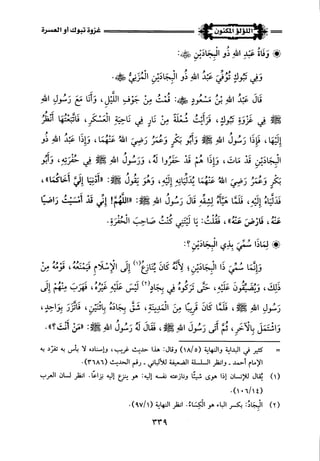 اللؤلؤ المكنون
غزوة تبوك أو العسرة
وفاة عبد الله ذو البجادين رضي الله عنه:
وفي تبوك توفي عبد الله ذو البجادين المزني رضي الله عنه.
قال عبد الله بن مسعود رضي الله عنه: قمت من جوف الليل، وأنا مع رسول الله
ﷺ في غزوة تبوك، فرأيت شعلة من نار في ناحية العسكر، فاتبعتها أنظر
إليها، فإذا رسول الله ﷺ وأبو بكر وعمر رضي الله عنهما، وإذا عبد الله ذو
البجادين قد مات، وإذا هم قد حفروا له، ورسول الله ﷺ في حفرته، وأبو
بكر وعمر رضي الله عنهما يدليانه إليه، وهو يقول ﷺ: «أدنيا إلي أخاكما»،
فدلياه إليه، فلما هيأه لشقه قال رسول الله ﷺ: «اللهم! إني قد أمسيت راضيا
عنه، فارض عنه»، فقلت: يا ليتني كنت صاحب الحفرة.
لماذا سمي بذي البجادين؟:
وإنما سمي ذا البجادين، لأنه كان ينازع(١) إلى الإسلام، فيمنعه قومه من
ذلك، ويضيقون عليه، حتى تركوه في بجاد(٢) ليس عليه غيره، فهرب منهم إلى
رسول الله ﷺ، فلما كان قريبا من المدينة، شق بجاده باثنين، فاتزر بواحد،
واشتمل بالآخر، ثم أتى رسول الله ﷺ، فقال له رسول الله ﷺ: «من أنت؟»
= كثير في البداية والنهاية (١٨/٥) وقال: هذا حديث غريب، وإسناده لا بأس به تفرد به
الإمام أحمد ـ وانظر السلسلة الضعيفة للألباني ـ رقم الحديث (٣٨٦٦).
(١) يقال للإنسان إذا هوى شيئا ونازعته نفسه إليه: هو ينزع إليه نزاعا. انظر لسان العرب
(١٠٦/١٤).
(٢) البجاد: بكسر الباء هو الكساء. انظر النهاية (٩٧/١).
٣٣٩